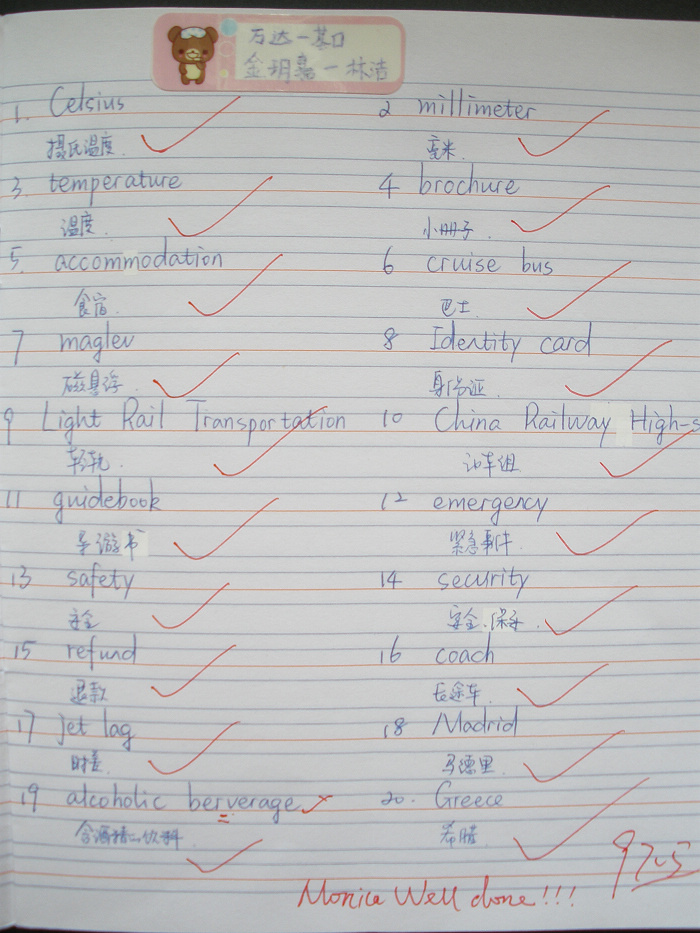 万达一基口
金玥嘉一林洁
1. Celsius 2 millimeter
摄氏温度. 毫米.
3 temperature 4 brochure
温度. 小册子.
5. accommodation 6 cruise bus
食宿. 巴士.
7 maglev 8 Identity card
磁悬浮 身份证
9 Light Rail Transportation 10 China Railway High-s
轻轨. 动车组
11 guidebook 12 emergency
导游书 紧急事件.
13 safety 14 security
安全 安全.保安.
15 refund 16 coach
退款 长途车.
17 jet lag 18 Madrid
时差 马德里.
19 alcoholic berverage 20. Greece
含酒精的饮料 希腊
97.5
Monica Well done!!!